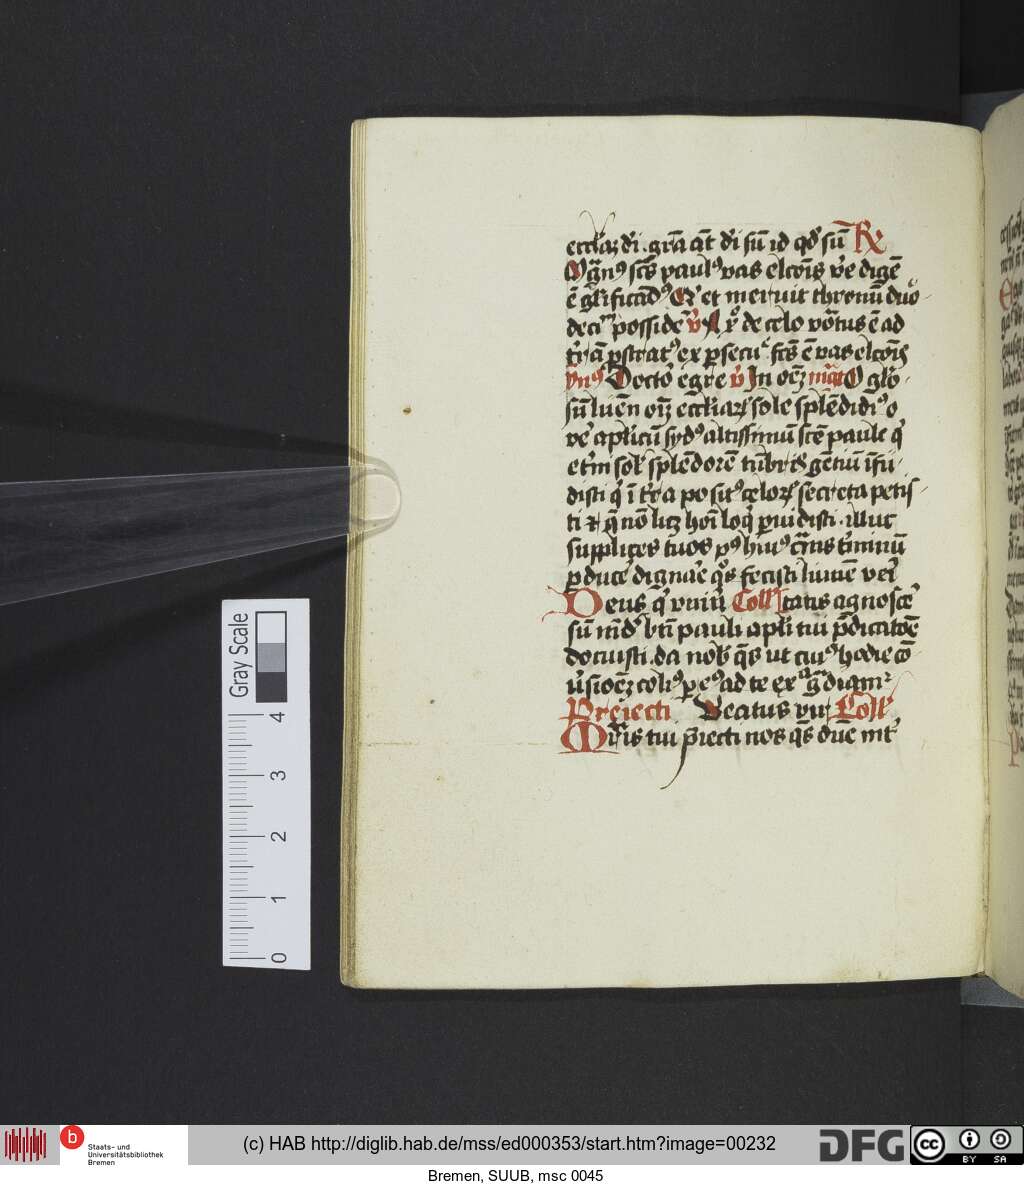 eccliaz di · gra̅ at̅ di su̅ id qd̕ su̅ R
Mag̅n⁹ sc̅s paul⁹ vas elco̅is ve̅ dig̅e
e̅ gl̅ificad⁹ Q' et meruit thronu̅ duo
deci̅ posside̅ v A r̕ de celo vo̅tus e̅ ad
tr̕a̅ p̅strat⁹ ex p̲secu̕ · fc̅s e̅ vas elco̅is
ymp⁹ Docto̕ egre v In oe̅z mag̅t O glo̕
su̅ lue̅n oi̅z eccliaꝝ sole sple̅didi⁹ o
ve̕ aplicu̅ syd⁹ altissimu̅ sc̅e paule q̕
eti̅m sol̕ sple̅dore̅ tnbri̕s ge̅tiu̅ i̅fu̕
disti q̕ i̅ tr̕a posit⁹ celoꝝ secreta petis
ti ⁊ q̅ no̅ licz hoi̅ loq̕ p̲uidisti · illuc
supplices tuos p⁹ hui⁹ c̅rnis t̕minu̅
p̲duce̕ dignae̕ q⁰s fecisti lume̅ vei̕
Deus q̕ vniu̕ Coll̕ itatis agnosce̕
su̅ mi̅d⁹ bti̅ pauli apl̅i tui p̅dicato̅e
docuisti · da nob̕ q̅s ut cui⁹ hodie co̅
u̕sioe̅z colim⁹ p̲ e⁹ ad te exa g̅diam²
Preiecti Beatus vir Coll̕
Mr̅is tui p̅iecti nos q̅s dn̅e int̕
Gray Scale
4
3
2
1
0
b
Staats- und
Universitätsbibliothek
Bremen
(c) HAB http://diglib.hab.de/mss/ed000353/start.htm?image=00232
DFG
cc BY SA
Bremen, SUUB, msc 0045